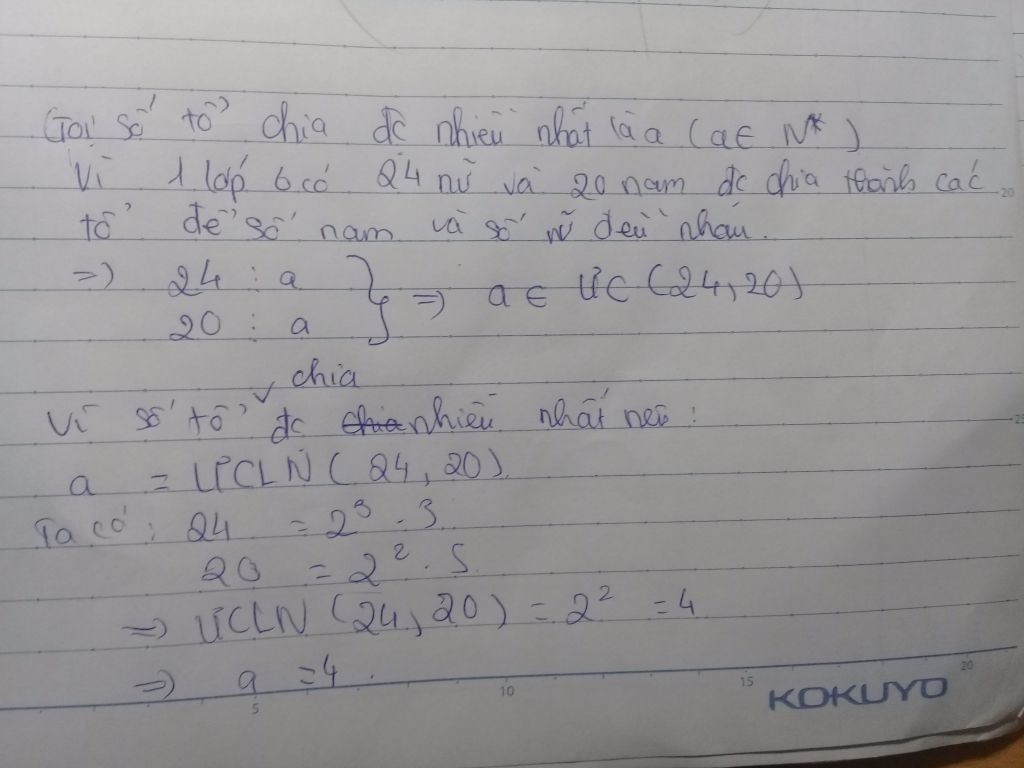 Gọi số tổ chia đc nhiều nhất là a (a ∈ N*)
Vì 1 lớp 6 có 24 nữ và 20 nam đc chia thành các
tổ để số nam và số nữ đều nhau.
=> 24 : a
20 : a } => a ∈ ƯC (24, 20)
chia
Vì số tổ đc chia nhiều nhất nên :
a = ƯCLN (24, 20)
Ta có : 24 = 2³ . 3
20 = 2² . 5
=> ƯCLN (24, 20) = 2² = 4
=> a = 4.
5 10 15 20
KOKUYO
20
25